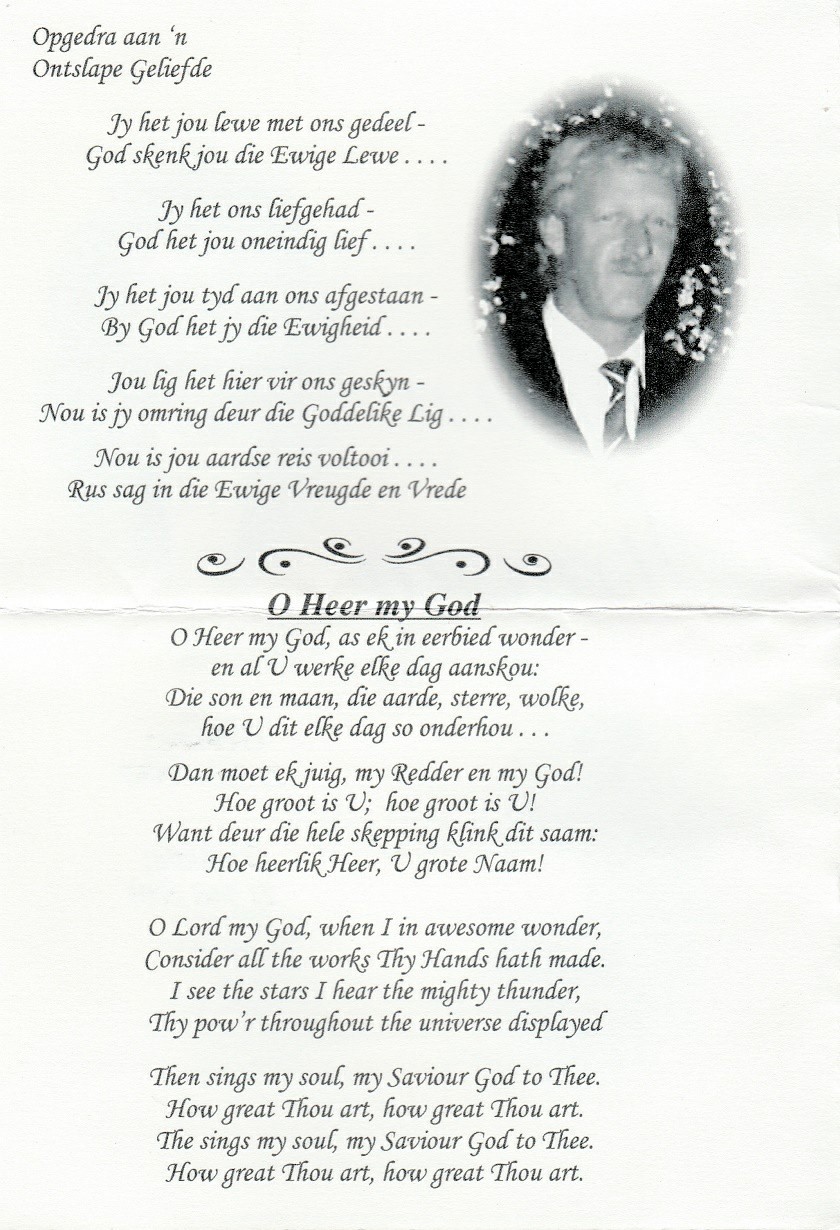 Opgedra aan ‘n
Ontslape Geliefde
Jy het jou lewe met ons gedeel -
God skenk jou die Ewige Lewe . . . .
Jy het ons liefgehad -
God het jou oneindig lief . . . .
Jy het jou tyd aan ons afgestaan -
By God het jy die Ewigheid . . . .
Jou lig het hier vir ons geskyn -
Nou is jy omring deur die Goddelike Lig . . . .
Nou is jou aardse reis voltooi . . . .
Rus sag in die Ewige Vreugde en Vrede
O Heer my God
O Heer my God, as ek in eerbied wonder -
en al U werke elke dag aanskou:
Die son en maan, die aarde, sterre, wolke,
hoe U dit elke dag so onderhou . . .
Dan moet ek juig, my Redder en my God!
Hoe groot is U;  hoe groot is U!
Want deur die hele skepping klink dit saam:
Hoe heerlik Heer, U grote Naam!
O Lord my God, when I in awesome wonder,
Consider all the works Thy Hands hath made.
I see the stars I hear the mighty thunder,
Thy pow’r throughout the universe displayed
Then sings my soul, my Saviour God to Thee.
How great Thou art, how great Thou art.
The sings my soul, my Saviour God to Thee.
How great Thou art, how great Thou art.